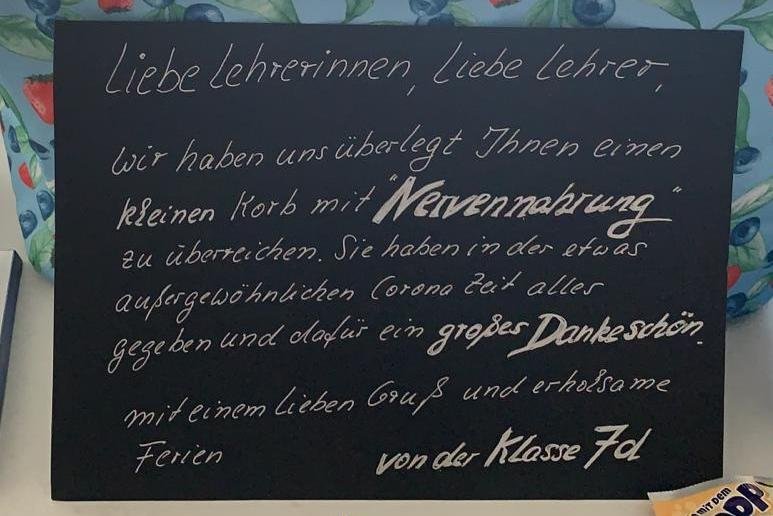 Liebe Lehrerinnen, Liebe Lehrer,
wir haben uns überlegt Ihnen einen
kleinen Korb mit "Nervennahrung"
zu überreichen. Sie haben in der etwas
außergewöhnlichen Corona Zeit alles
gegeben und dafür ein großes Dankeschön.
mit einem Lieben Gruß und erholsame
Ferien
von der Klasse 7d
MIT DEM